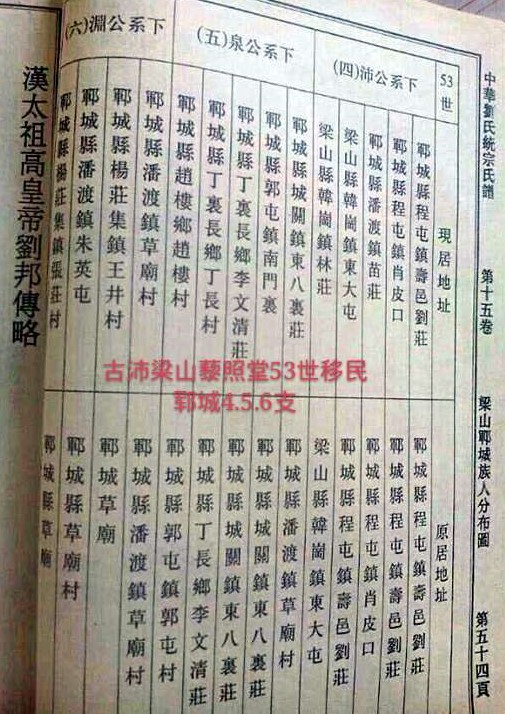 中華劉氏統宗氏譜 第十五卷 梁山鄆城族人分布圖 第五十四頁
53世
現居地址
原居地址
沛公系下(四)
鄆城縣程屯鎮壽邑劉莊
鄆城縣程屯鎮肖皮口
鄆城縣潘渡鎮苗莊
梁山縣韓崗鎮東大屯
梁山縣韓崗鎮林莊
泉公系下(五)
鄆城縣城關鎮東八裏莊
鄆城縣郭屯鎮南門裏
鄆城縣丁裏長鄉李文清莊
鄆城縣丁裏長鄉丁長村
鄆城縣趙樓鄉趙樓村
淵公系下(六)
鄆城縣潘渡鎮草廟村
鄆城縣楊莊集鎮王井村
鄆城縣潘渡鎮朱英屯
鄆城縣楊莊集鎮張莊村
鄆城縣程屯鎮壽邑劉莊
鄆城縣程屯鎮壽邑劉莊
鄆城縣程屯鎮肖皮口
鄆城縣程屯鎮壽邑劉莊
梁山縣韓崗鎮東大屯
鄆城縣潘渡鎮草廟村
鄆城縣城關鎮東八裏莊
鄆城縣城關鎮東八裏莊
鄆城縣丁長鄉李文清莊
鄆城縣郭屯鎮郭屯村
鄆城縣潘渡鎮草廟村
鄆城草廟
鄆城縣草廟村
鄆城縣草廟
古沛梁山藜照堂53世移民
郓城4.5.6支
漢太祖高皇帝劉邦傳略